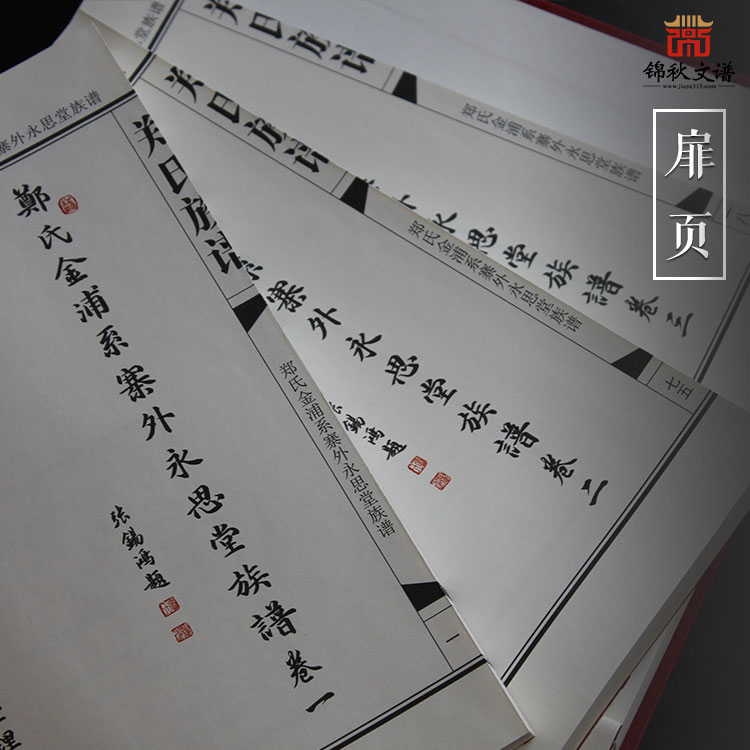 锦秋文谱
www.jiapu315.com
扉页
寨外永思堂族谱
郑氏金浦系寨外永思堂族谱
一
鄭氏金浦系寨外永思堂族譜 卷一
张錫鴻題
郑氏金浦系寨外永思堂族谱
七五
寨外永思堂族譜 卷二
张錫鴻題
堂族谱
郑氏金浦系寨外永思堂族谱
永思堂族譜 卷三
理